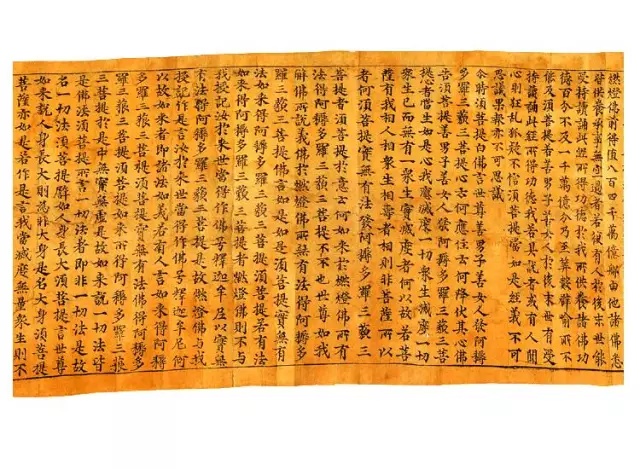 燃燈佛前得值八百四千萬億那由他諸佛悉
皆供養承事無空過者若復有人於後末世能
受持讀誦此經所得功德於我所供養諸佛功
德百分不及一千萬億分乃至筭數譬喻所不
能及須菩提善男子善女人於後末世有受
持讀誦此經所得功德我若具說者或有人聞
心則狂亂狐疑不信須菩提當知是經義不可
思議果報亦不可思議
尒時須菩提白佛言世尊善男子善女人發阿耨
多羅三藐三菩提心云何應住云何降伏其心佛
告須菩提善男子善女人發阿耨多羅三藐三菩
提者當生如是心我應滅度一切眾生滅度一切
眾生已而無有一眾生實滅度者何以故若菩
薩有我相人相眾生相壽者相則非菩薩所以
者何須菩提實無有法發阿耨多羅三藐三
菩提者須菩提於意云何如來於燃燈佛所有
法得阿耨多羅三藐三菩提不不也世尊如我
解佛所說義佛於燃燈佛所無有法得阿耨多
羅三藐三菩提佛言如是如是須菩提實無有
法如來得阿耨多羅三藐三菩提須菩提若有法
如來得阿耨多羅三藐三菩提者燃燈佛則不與
我授記汝於來世當得作佛號釋迦牟尼以實無
有法得阿耨多羅三藐三菩提是故燃燈佛與我
授記作是言汝於來世當得作佛號釋迦牟尼何
以故如來者即諸法如義若有人言如來得阿耨
多羅三藐三菩提須菩提實無有法佛得阿耨多
羅三藐三菩提須菩提如來所得阿耨多羅三藐
三菩提於是中無實無虛是故如來說一切法皆
是佛法須菩提所言一切法者即非一切法是故
名一切法須菩提譬如人身長大須菩提言世尊
如來說人身長大則為非大身是名大身須菩提
菩薩亦如是若作是言我當滅度無量眾生則不